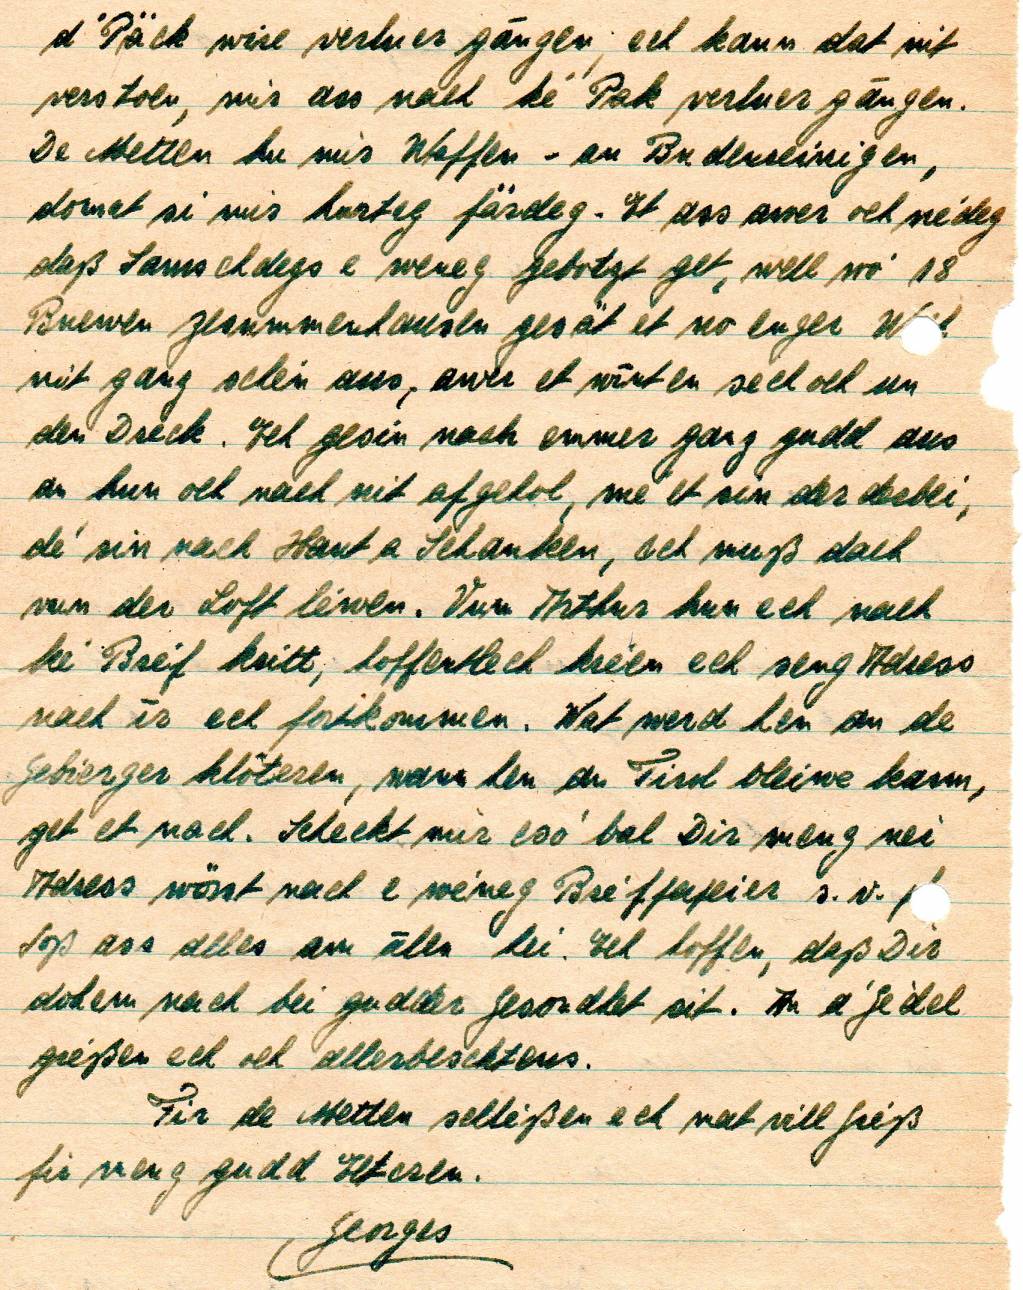 d'Päck wire verluer gängen, ech kann dat nit
verstoen, mir ass nach ké Pak verluer gängen.
De Metten hu mir Waffen - an Buderreinigen,
domat si mir hurteg färdeg. Et ass awer och nédeg
daß Samschdegs e weneg gebotzt get, well wó 18
Buewen zesummenhausen gesät et no enger
nit ganz schéin aus, awer et wïrten sech och un
den Dreck. Ech gesin nach ëmmer ganz gudd aus
an hun och nach nit ofgehol, mé et sin der dobei,
dé sin nach Haut a Schanken, Ech muß dach
vun der Loft léwen. Vum Arthur hun ech nach
ké Bréif kritt, hoffentlech kréien ech seng Adress
nach ir ech fortkommen. Wat werd hen an de
Gebierger klöteren, wann hen an Tirol bleiwe kann,
get et nach. Scheckt mir esó bal Dir meng nei
Adress wösst nach e wéneg Bréifpapier s. v. p.
Soß ass alles am älen hei. Ech hoffen, daß Dir
dohem nach bei gudder Gesondhet sit. An d'Gédel
gréißen ech och allerbeschtens.
Fir de Metten schléißen ech mat vill Gréiß
fir meng gudd Elteren.
Georges